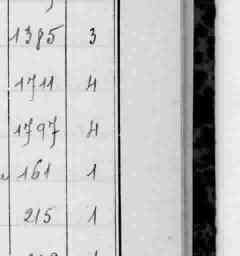 1385 3
1711 4
1797 4
161 1
215 1